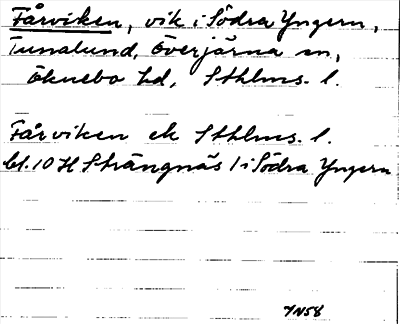 Fårviken, vik i Södra Yngern,
Tunalund, Överjärna sn,
Öknebo hd, Sthlms. l.
Fårviken ek Sthlms. l.
bl. 10 H Strängnäs / i Södra Yngern
YN58